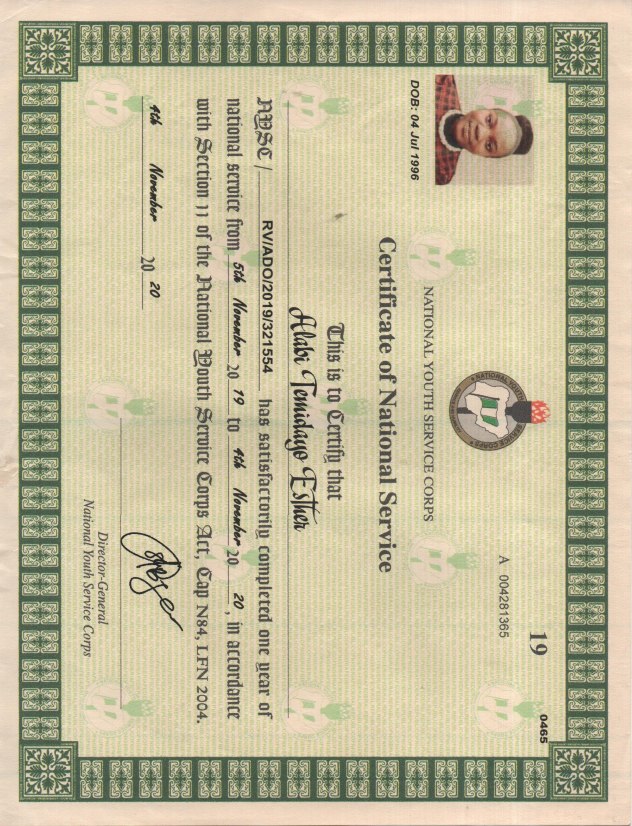 19
0465
A 004281365
NATIONAL YOUTH SERVICE CORPS
Certificate of National Service
DOB: 04 Jul 1996
This is to Certify that
Alabi Temidayo Esther
NYSC / RV/ADO/2019/321554 has satisfactorily completed one year of
national service from 5th November 20 19 to 4th November 20 20, in accordance
with Section 11 of the National Youth Service Corps Act, Cap N84, LFN 2004.
4th November 20 20
Director-General
National Youth Service Corps